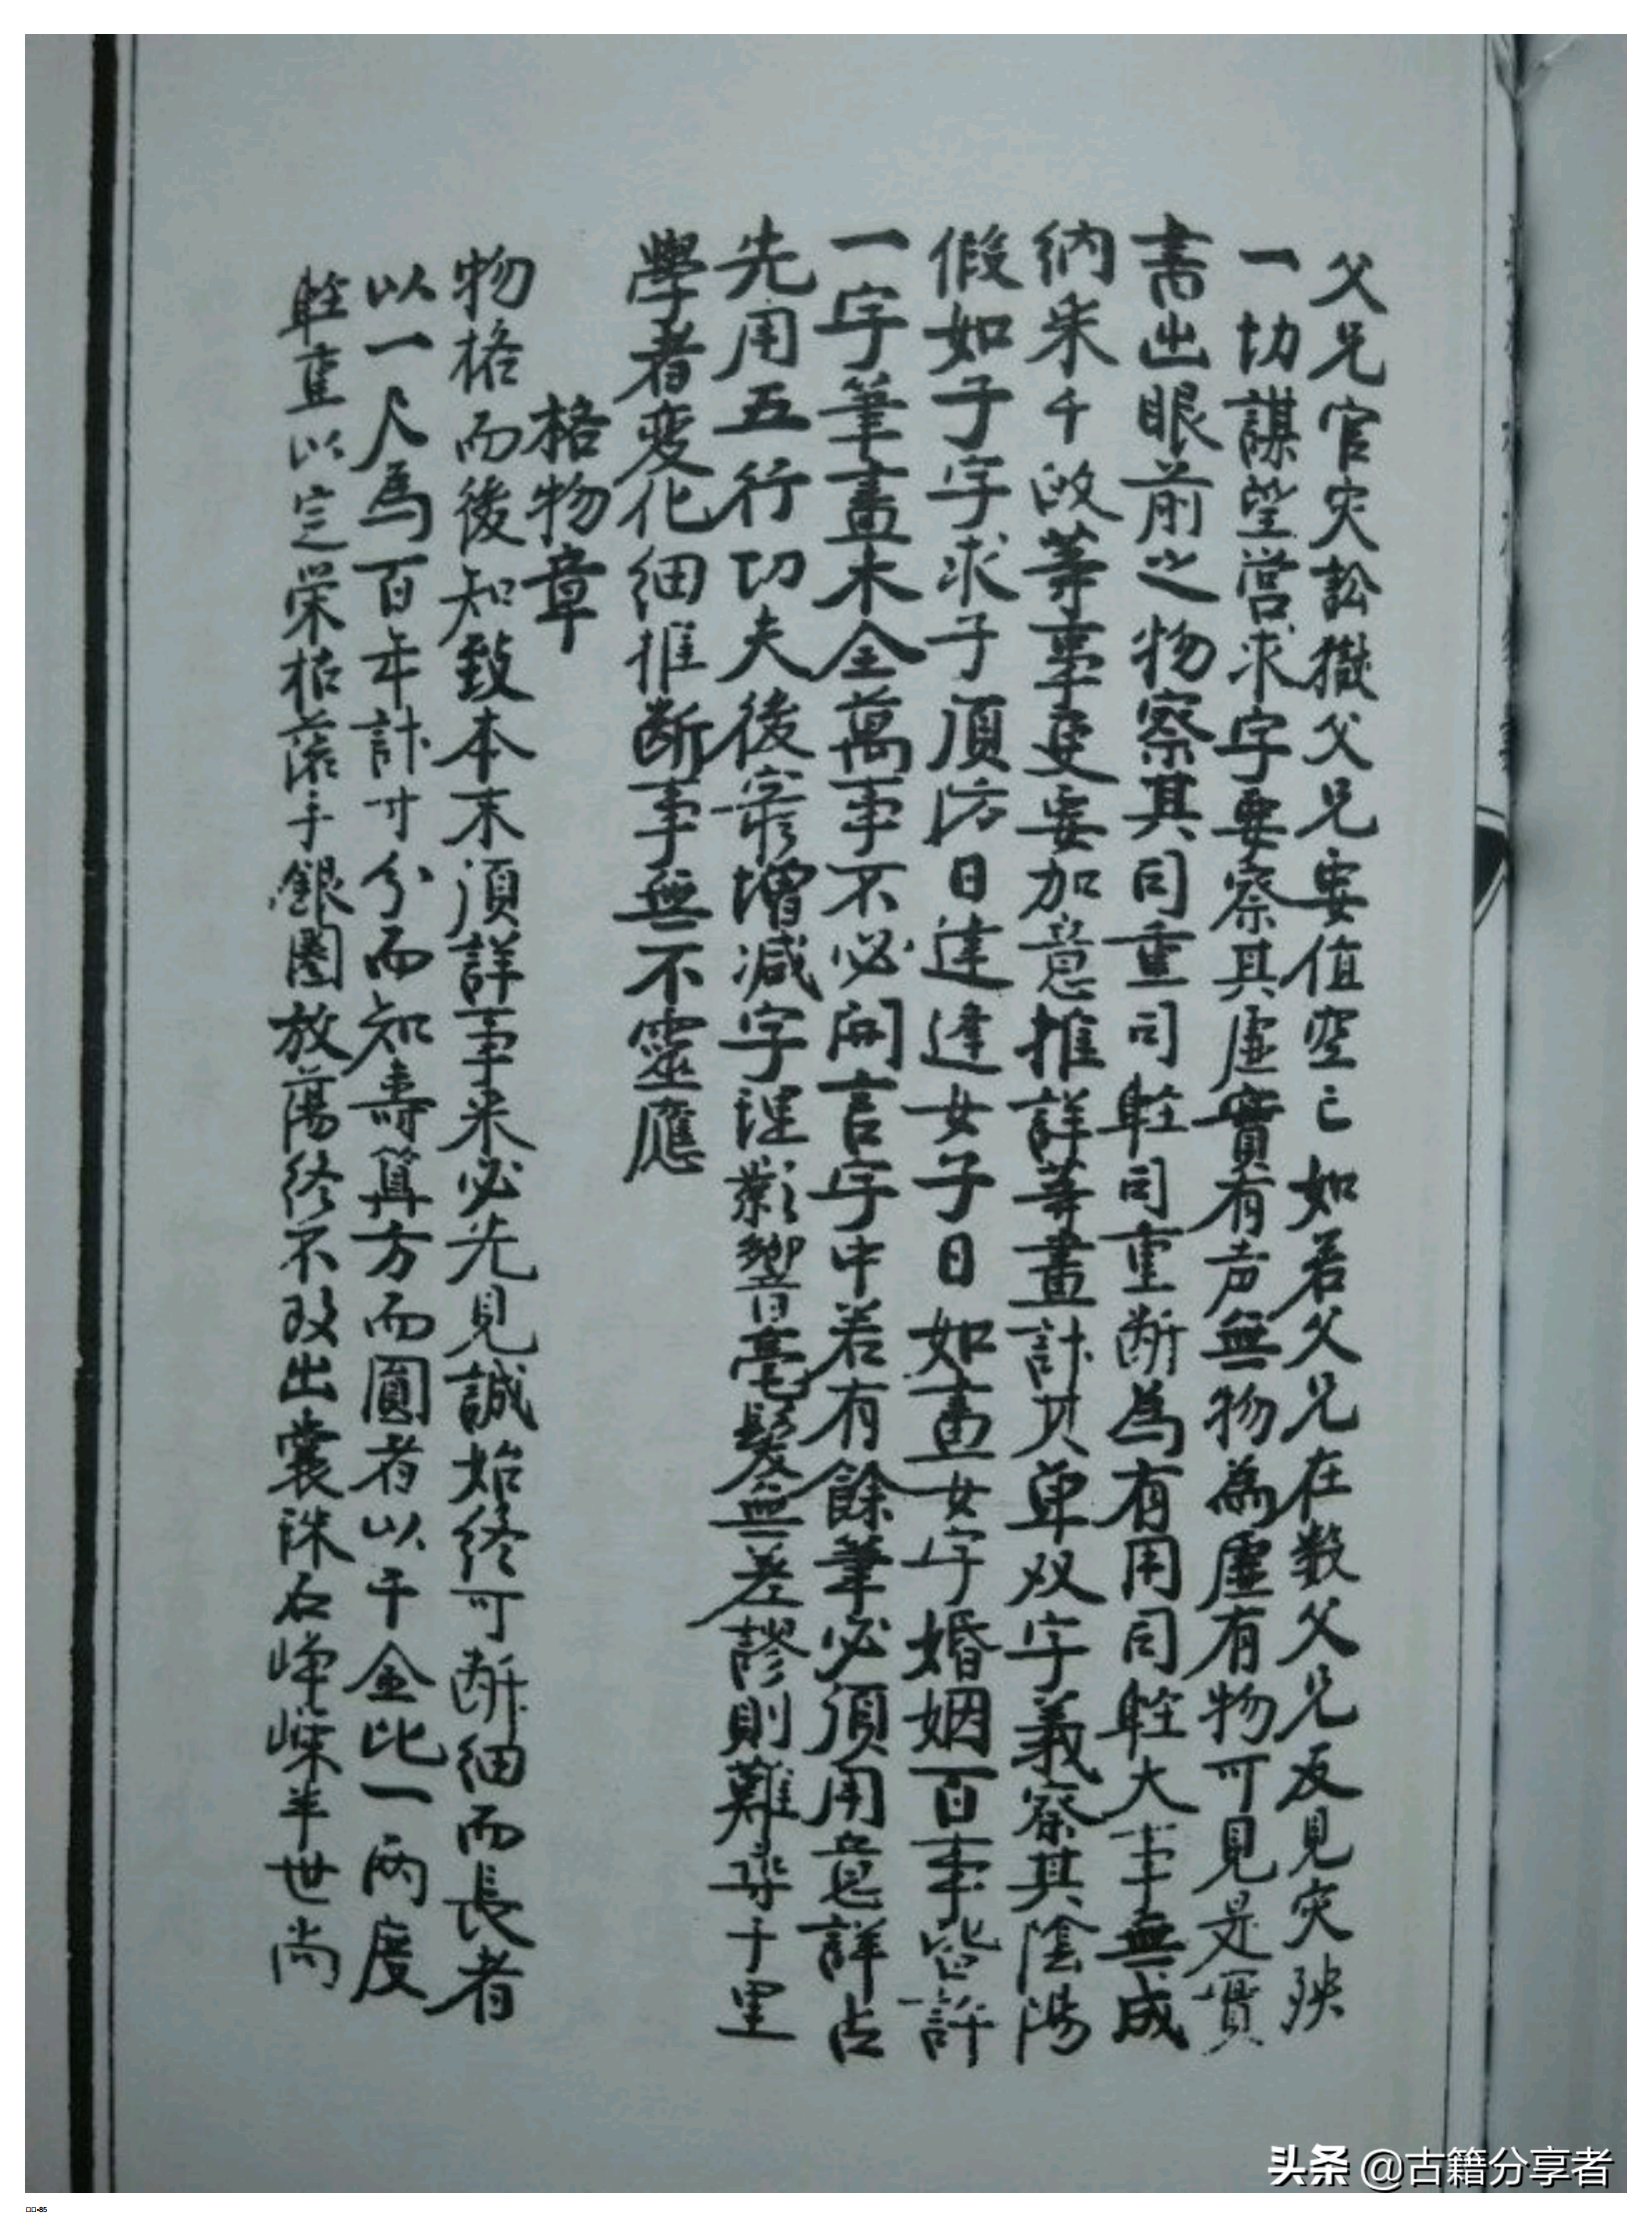 父兄官灾訟獄父兄要值空亡如若父兄在数父兄反見灾殃
一切謀望営求字要察其虚實有声無物為虚有物可見是實
書出眼前之物察其司重司輕司重断為有用司輕大事無成
納采千啟等事更要加意推詳筆畫計其单双字義察其陰陽
假如子字求子須防日逢女子日如畫女字婚姻百事皆許
一字筆畫木全萬事不必開言字中若有餘筆必須用意詳占
先用五行切夫後察增减字理影響毫髮無差謬則難尋千里
學者変化細推断事無不靈應
格物章
物格而後知致本末須詳事来必先見誠始終可断細而長者
以一人為百年計寸分而知壽算方而圓者以千金比一两度
輕重以定栄枯落手銀圏放蕩終不改出囊珠石峥嶸半世尚
头条 @古籍分享者
-85